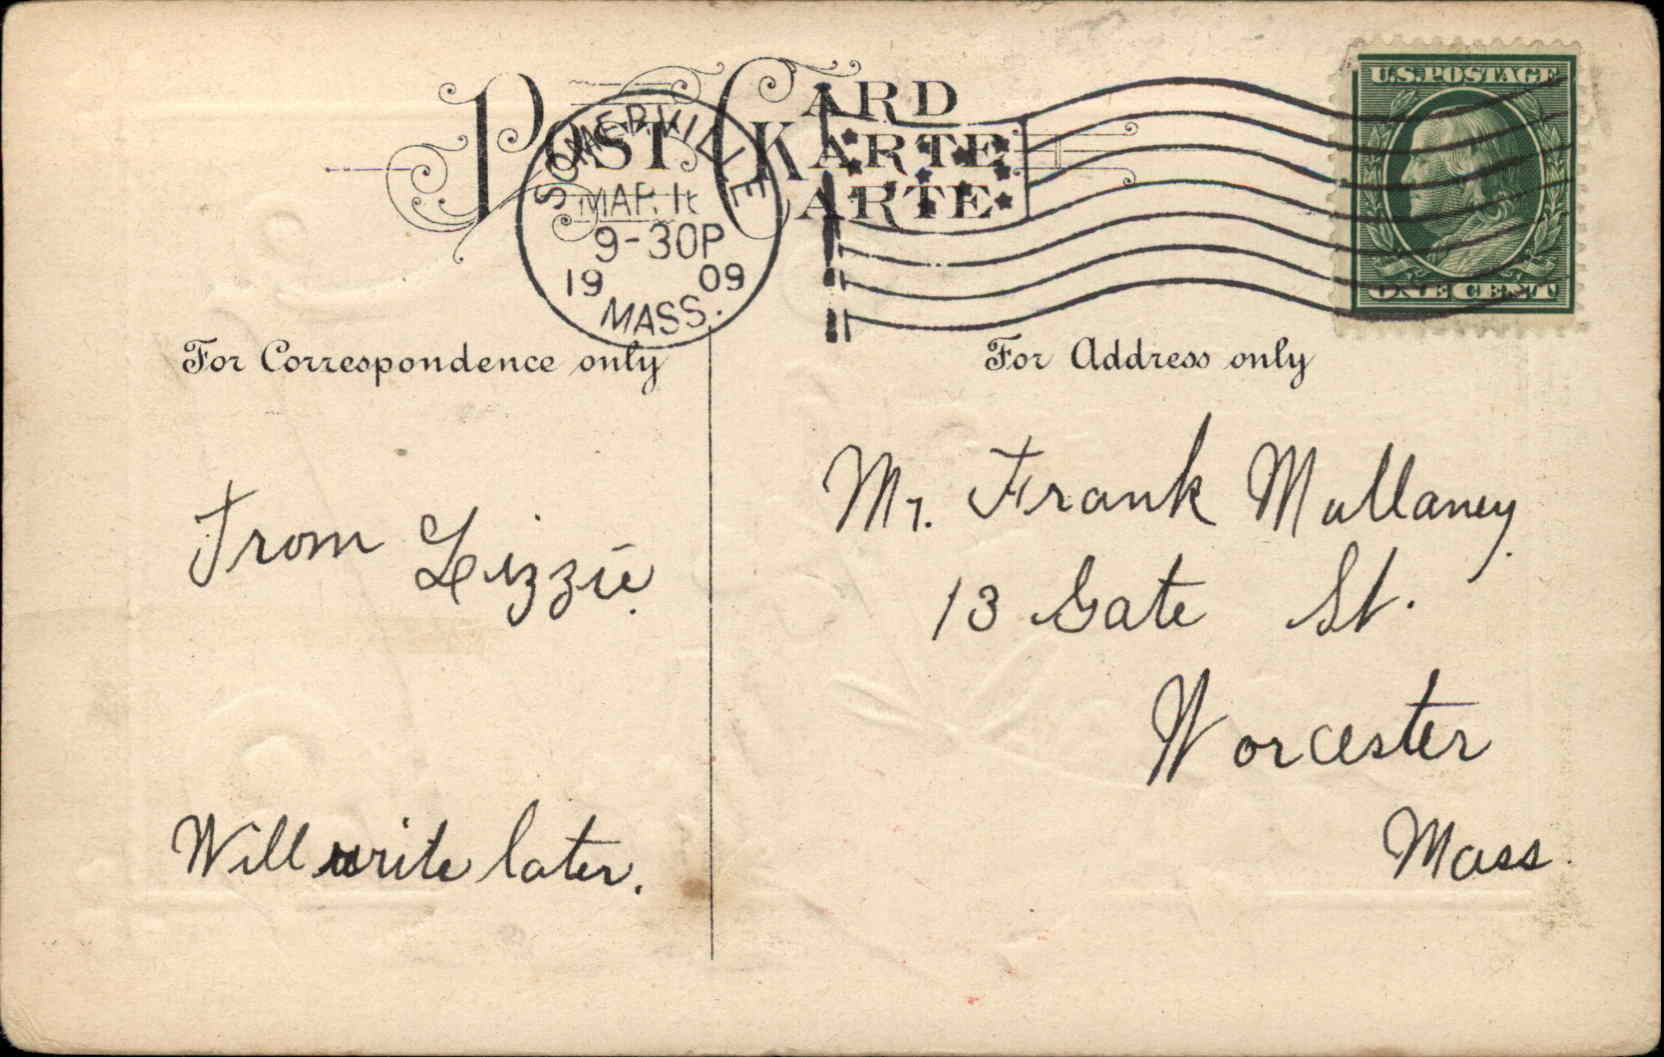 POST CARD
KARTE
CARTE
SOMERVILLE
MAR.
9-30P
19 09
MASS.
U.S. POSTAGE
ONE CENT
For Correspondence only
For Address only
From Lizzie.
Will write later.
Mr. Frank Mullaney.
13 Gate St.
Worcester
Mass.